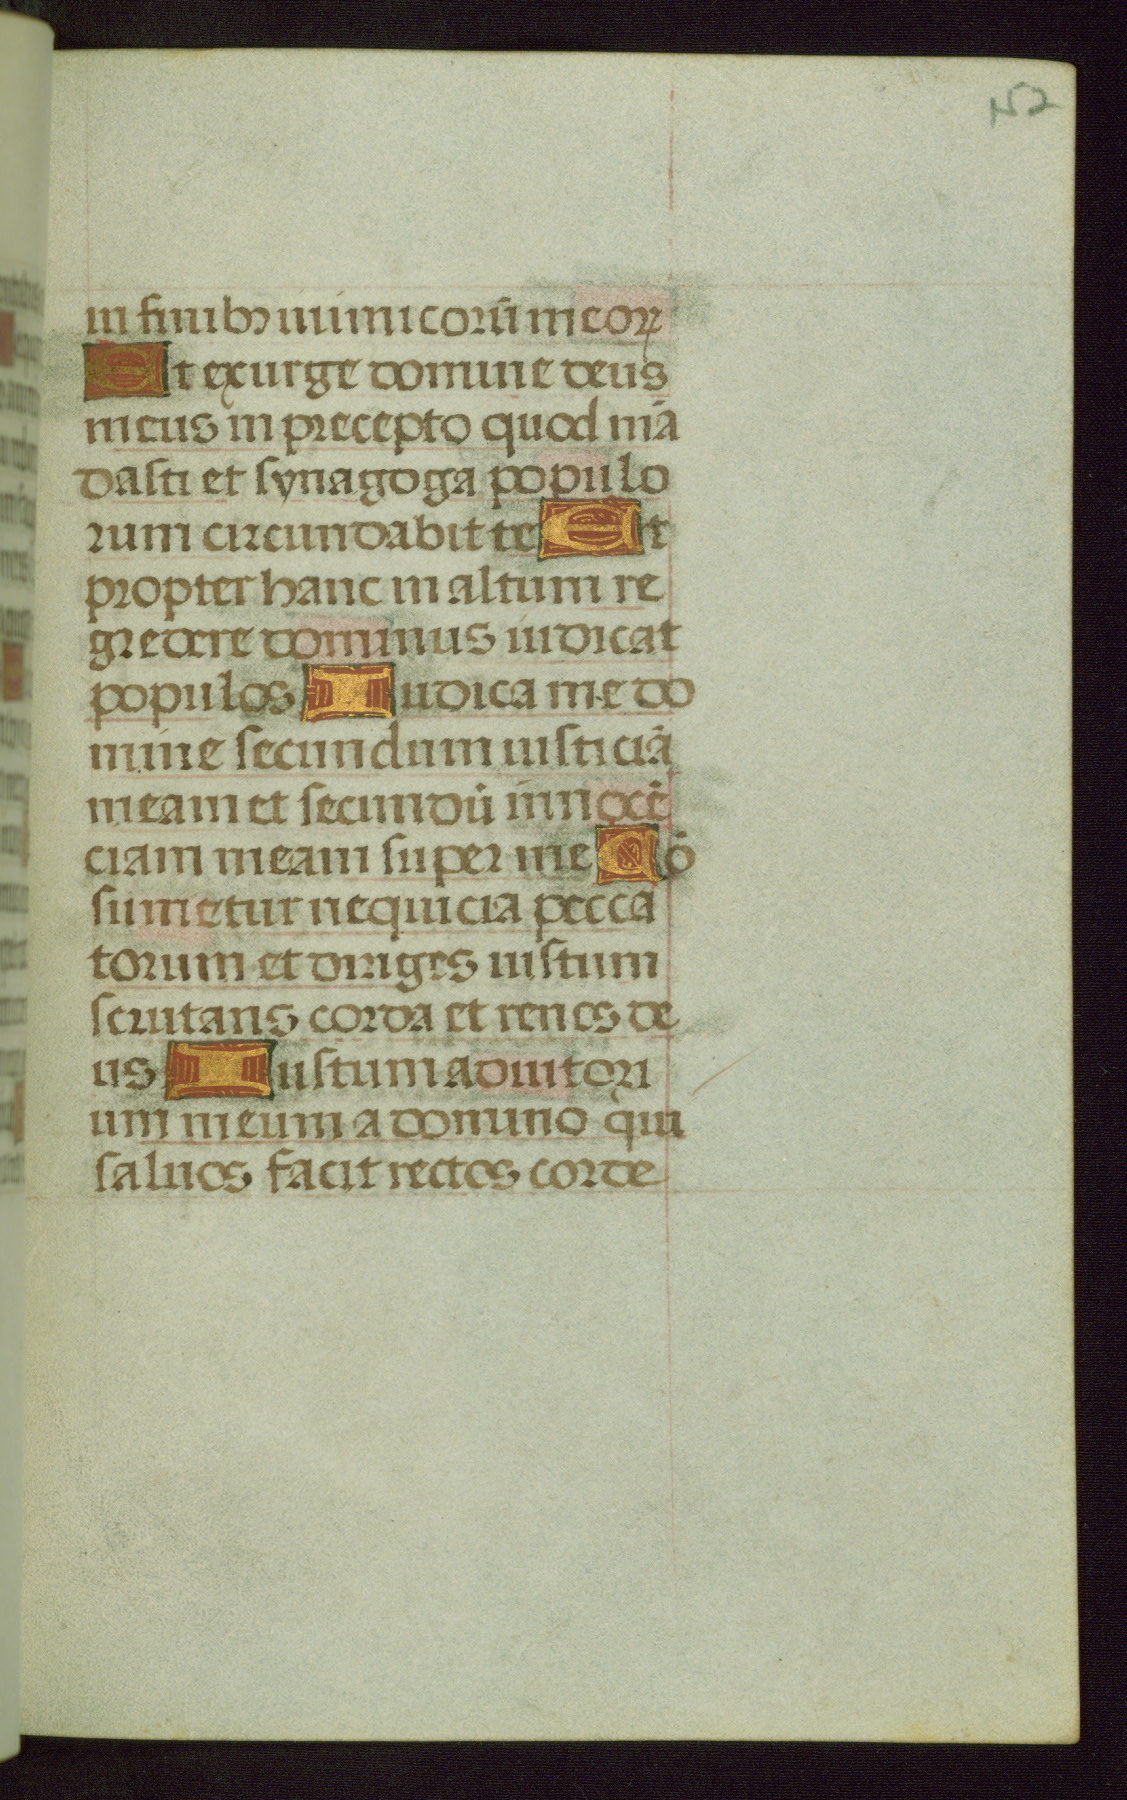 152
in finibꝫ inimicorū meorꝝ
Et exurge domine deus
meus in precepto quod mā
dasti et synagoga populo
rum circundabit te Et
propter hanc in altum re
gredere dominus iudicat
populos Iudica me do
mine secundum iusticiā
meam et secundū innocē
ciam meam super me Cō
sumetur nequicia pecca
torum et diriges iustum
scrutans corda et renes de
us Iustum adiutori
um meum a domino qui
saluos facit rectos corde